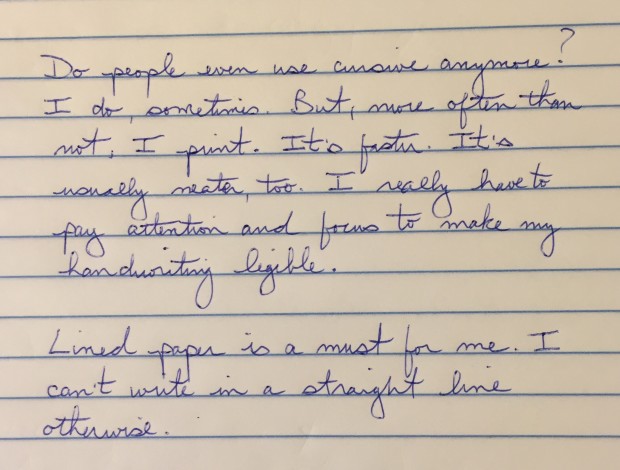 Do people even use cursive anymore?
I do, sometimes. But, more often than
not, I print. It's faster. It's
usually neater, too. I really have to
pay attention and focus to make my
handwriting legible.
Lined paper is a must for me. I
can't write in a straight line
otherwise.